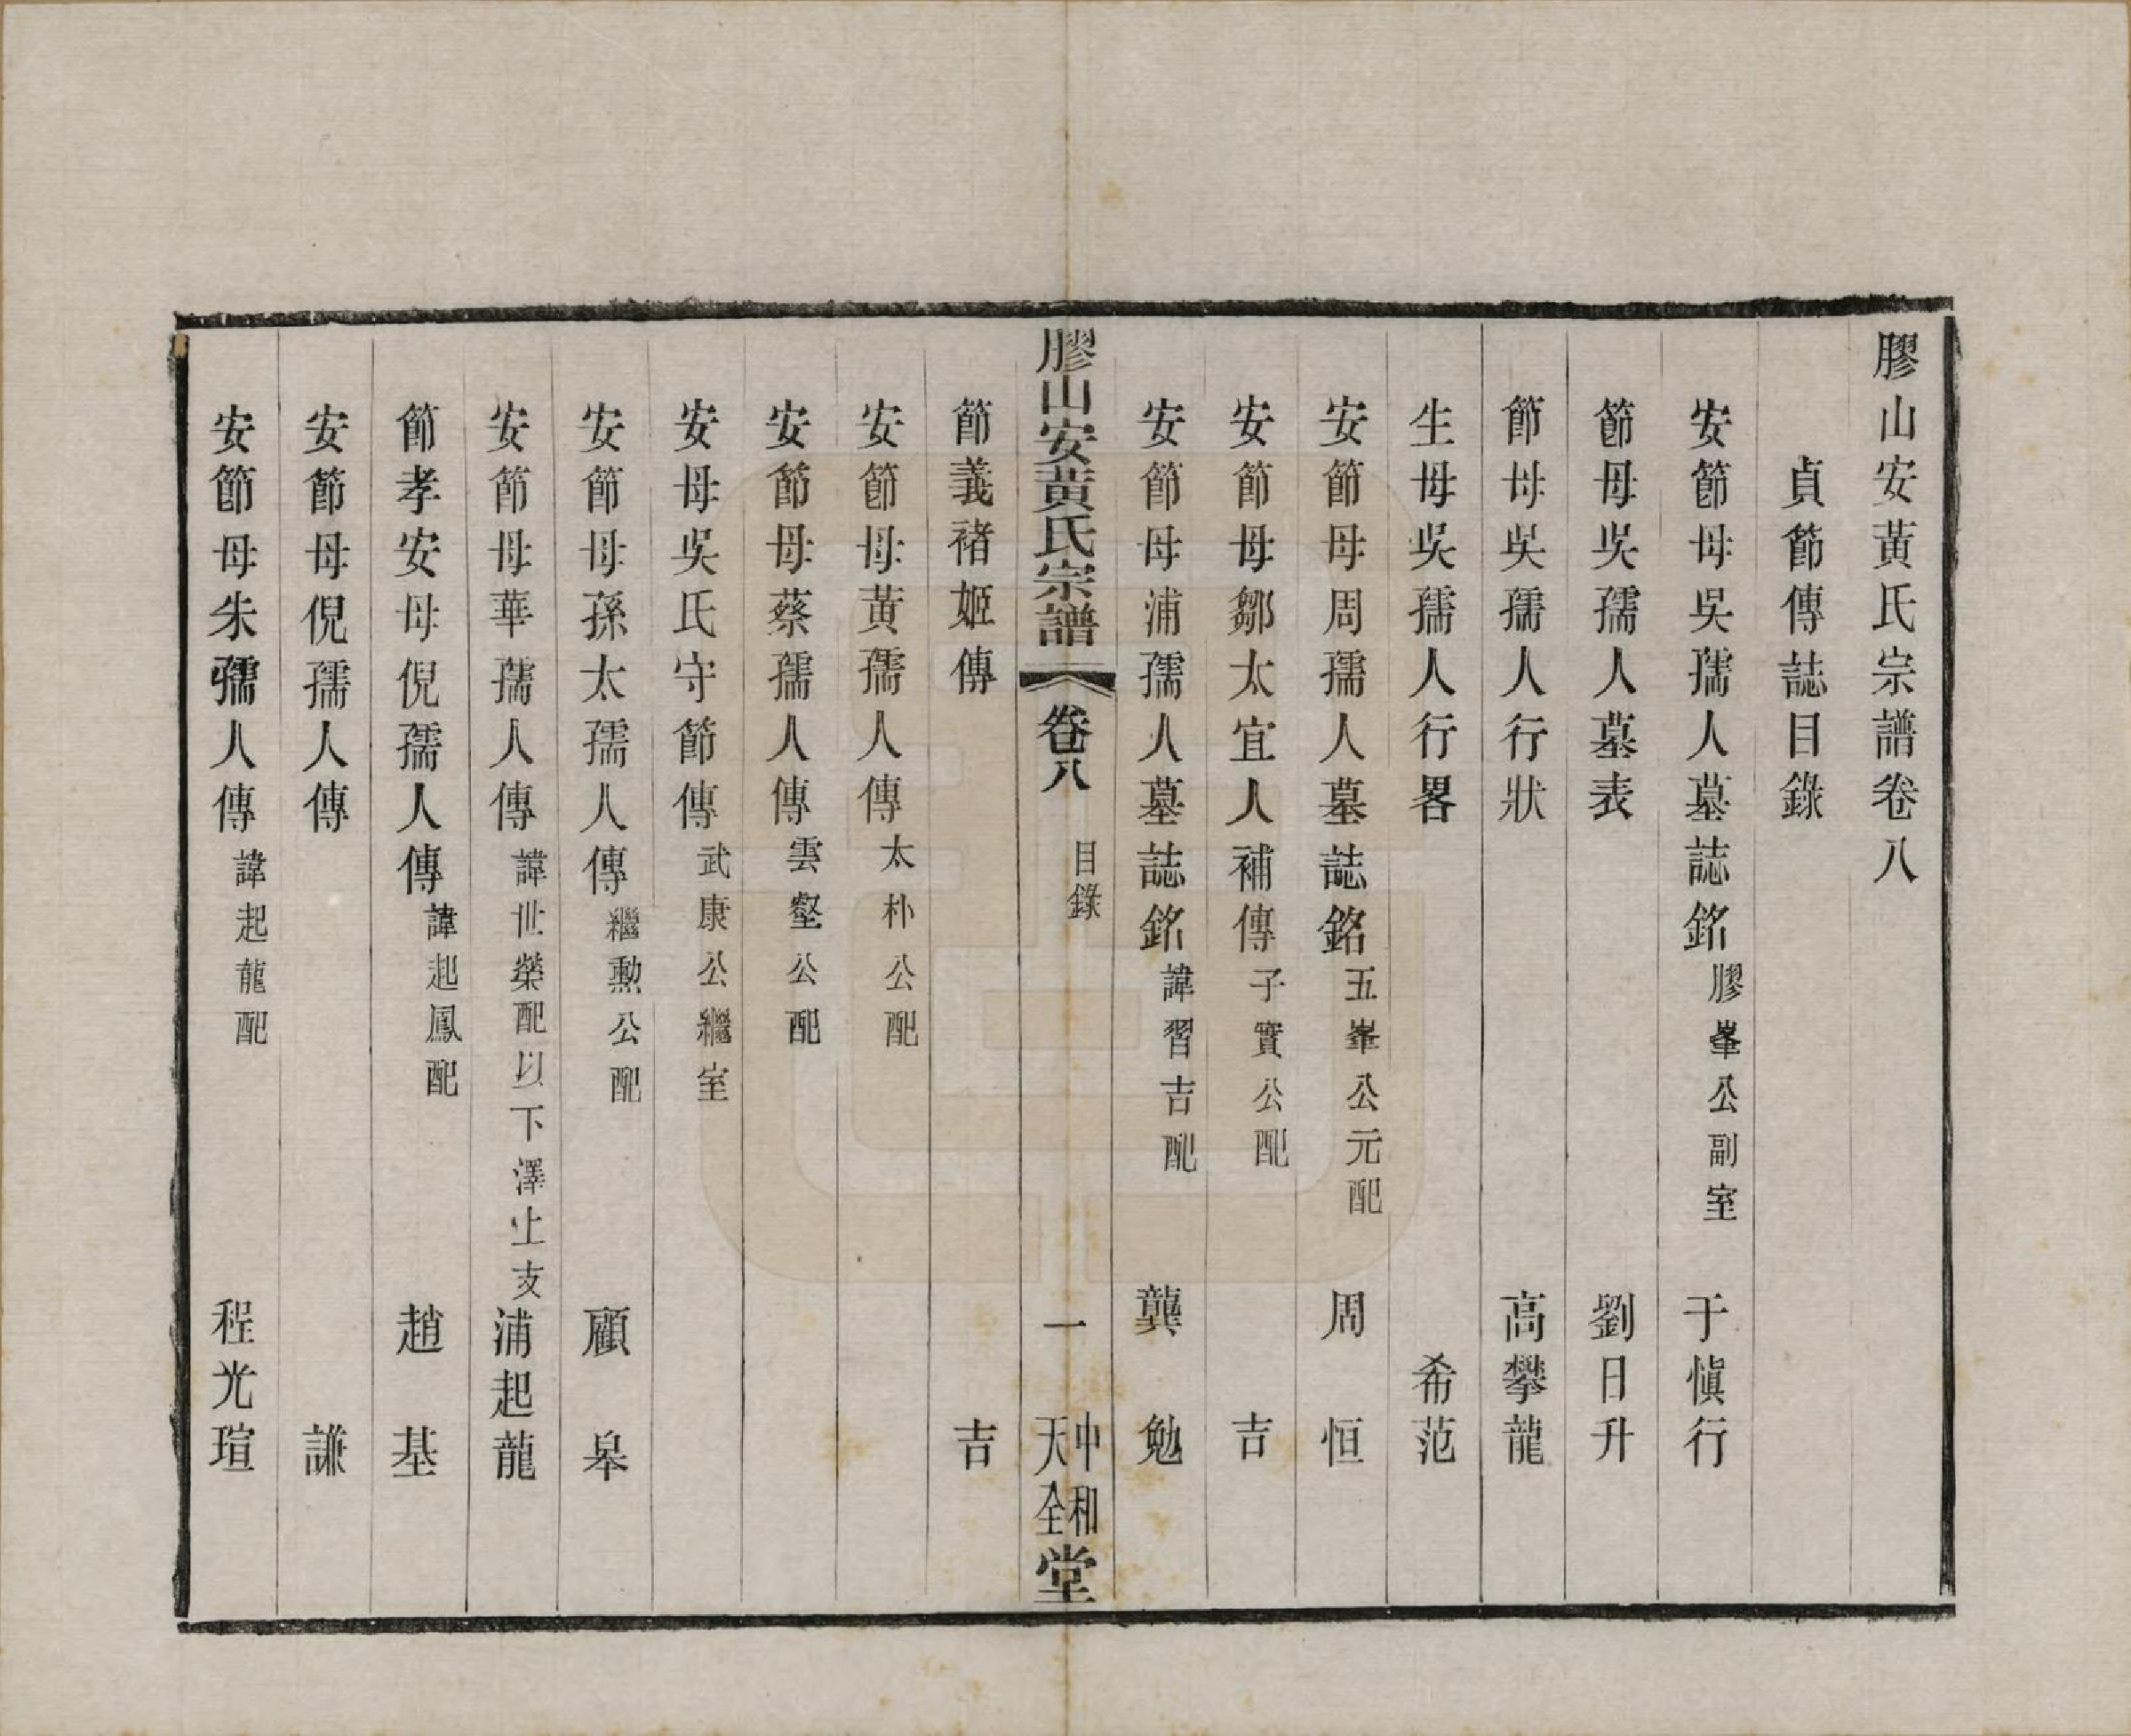 膠山安黃氏宗譜卷八
貞節傳誌目錄
安節母吳孺人墓誌銘 膠峯公副室 于愼行
節母吳孺人墓表 劉日升
節母吳孺人行狀 高攀龍
生母吳孺人行畧 希范
安節母周孺人墓誌銘 五峯公元配 周恒
安節母鄒太宜人補傳 子實公配 吉
安節母浦孺人墓誌銘 諱習吉配 龔勉
膠山安黃氏宗譜 卷八 目錄 一 中和天全堂
節義褚姬傳 吉
安節母黃孺人傳 太朴公配
安節母蔡孺人傳 雲壑公配
安母吳氏守節傳 武康公繼室
安節母孫太孺人傳 繼勲公配 顧皋
安節母華孺人傳 諱世榮配以下澤上支 浦起龍
節孝安母倪孺人傳 諱起鳳配 趙基
安節母倪孺人傳 謙
安節母朱孺人傳 諱起龍配 程光瑄